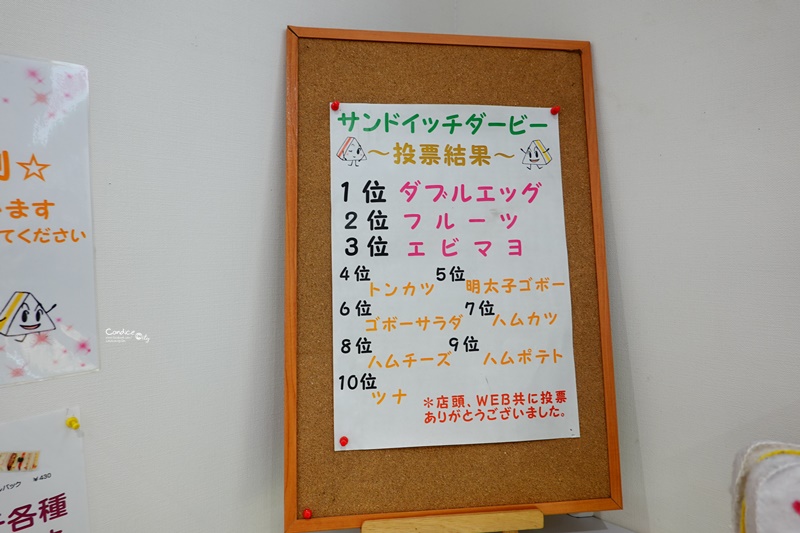 サンドイッチダービー
～投票結果～
1位 ダブルエッグ
2位 フルーツ
3位 エビマヨ
4位 トンカツ
5位 明太子ゴボー
6位 ゴボーサラダ
7位 ハムカツ
8位 ハムチーズ
9位 ハムポテト
10位 ツナ
＊店頭、WEB共に投票
ありがとうございました。
☆
ます
てください
パック ¥430
各種
Candice City